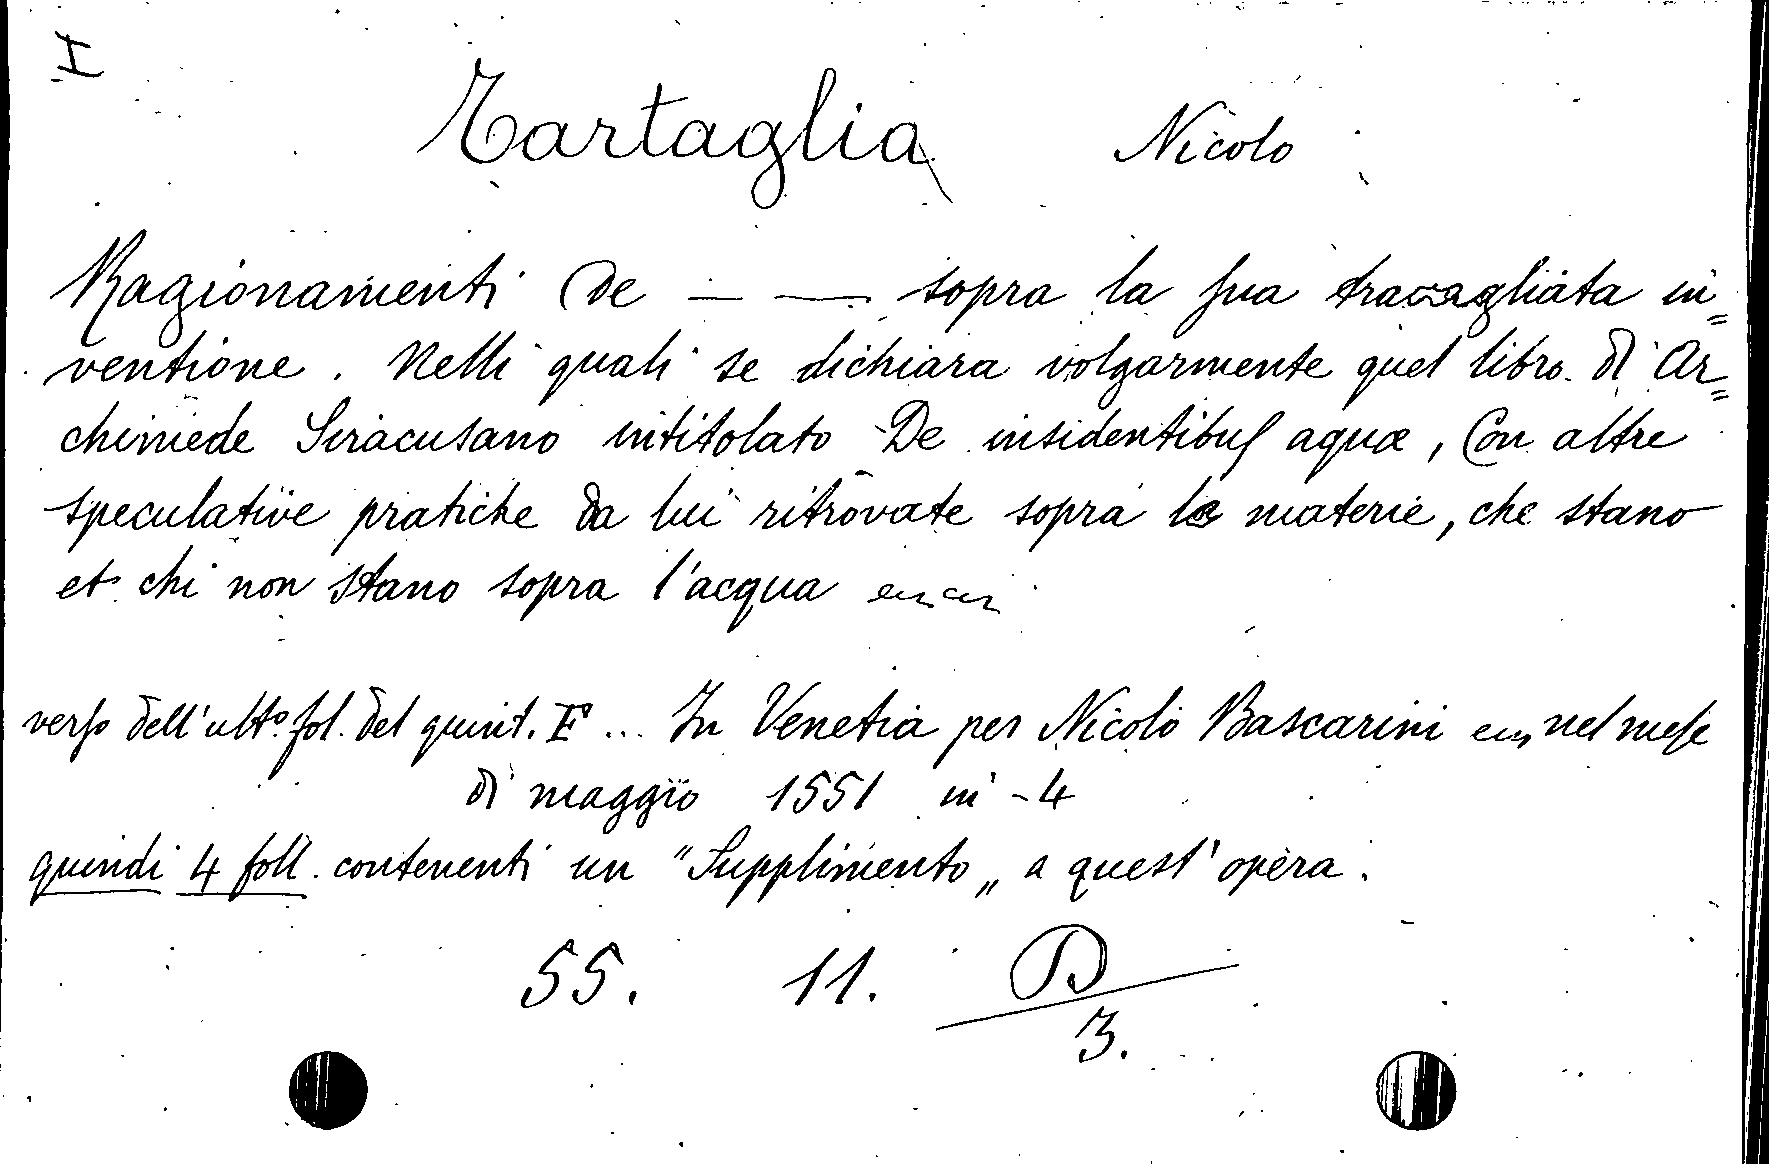 I
Tartaglia Nicolo
Ragionamenti de — — sopra la sua travagliata in=
ventione. Nelli quali se dichiara volgarmente quel libro di Ar=
chimede Siracusano intitolato De insidentibus aquæ, Con altre
speculative pratiche da lui ritrovate sopra le materie, che stano
et chi non stano sopra l'acqua
verso dell'ult.º fol. del quint. F ... In Venetia per Nicolo Bascarini nel mese
di maggio 1551 in-4
quindi 4 foll. contenenti un "Supplimento„ a quest'opera.
55. 11. B
3.